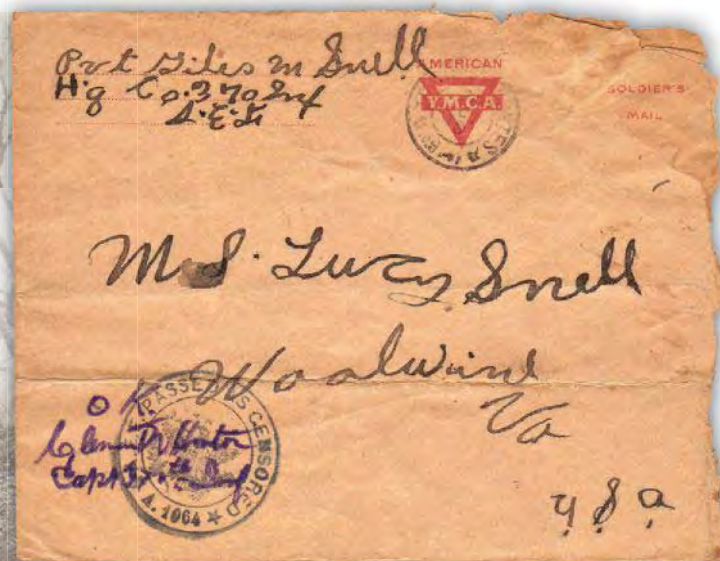 Pvt Giles M Snell
Hq Co. 370 Inf
A.E.F.
AMERICAN
Y.M.C.A.
SOLDIER'S
MAIL
M.S. Lucy Snell
Woolwine
Va
U S a
OK
Capt 370th Inf
PASSED AS CENSORED
A. 1064